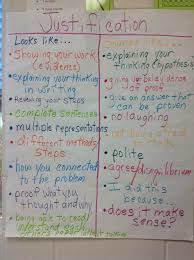 Justification
Looks like...
• Showing your work
(evidence)
• explaining your thinking
in writing
• Reviewing your steps
• complete sentences
• multiple representations
• different methods/
steps
• how you connected
to the problem
• proof what you
thought and why
• being able to read/
understand each
Sounds like...
• explaining your
thinking/hypothesis
• giving evidence
can proof
• give an answer that
can be proven
• no laughing
• not being afraid
• polite
• agree/disagree
• I did this
because...
• does it make
sense?